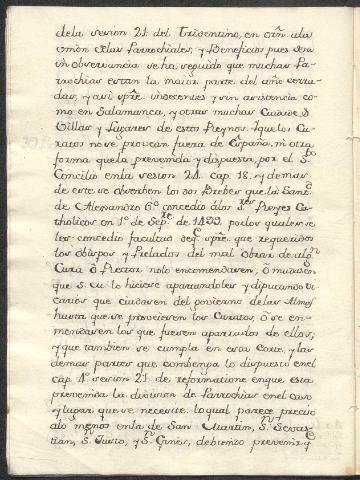 dela sesion 21 del Tridentino, en orn̄ ala
union delas Parrochiales, y Beneficios pues desu
in observancia se ha seguido que muchas Pa-
rrochias estan la maior parte del año cerra-
das, y asi spr̄e indecentes y sin asistencia co-
mo en Salamanca, y otras muchas Ciudades
Villas y Lugares de estos Reynos. Aquelos Cu-
ratos nose provean fuera de España, ni en otra
forma quela prevenida y dispuesta por el Sto
Concilio enla sesion 24. cap. 18. y demas
de este se observen los dos Brebes que la Santd
de Alexandro 6º concedio álos Sres Reyes Ca-
tholicos en 1º de Sepre de 1499. porlos quales se
les concedio facultad de q̄ spr̄e que requeridos
los obispos y Prelados del mal obrar de algn
Cura ô Rector nolo enmendaren, ô mudasen
que S. M. lo hiciese apartandoles y diputando Vi-
carios que cuidasen del govierno delas Almas
hasta que se proveiesen los Curatos, ô se en-
mendasen los que fuesen apartados de ellos;
y que tambien se cumpla en esta Corte, y las
demas partes que combenga lo dispuesto enel
cap. 4º sesion 21 de reformatione enque esta
prevenida la division de Parrochias enel caso
y lugar que se necesite. loqual parece preciso
alo menos enla de San Martin, Sn Sevas-
tian, Sn Justo, y Sn Gines, debiendo prevenir q̄